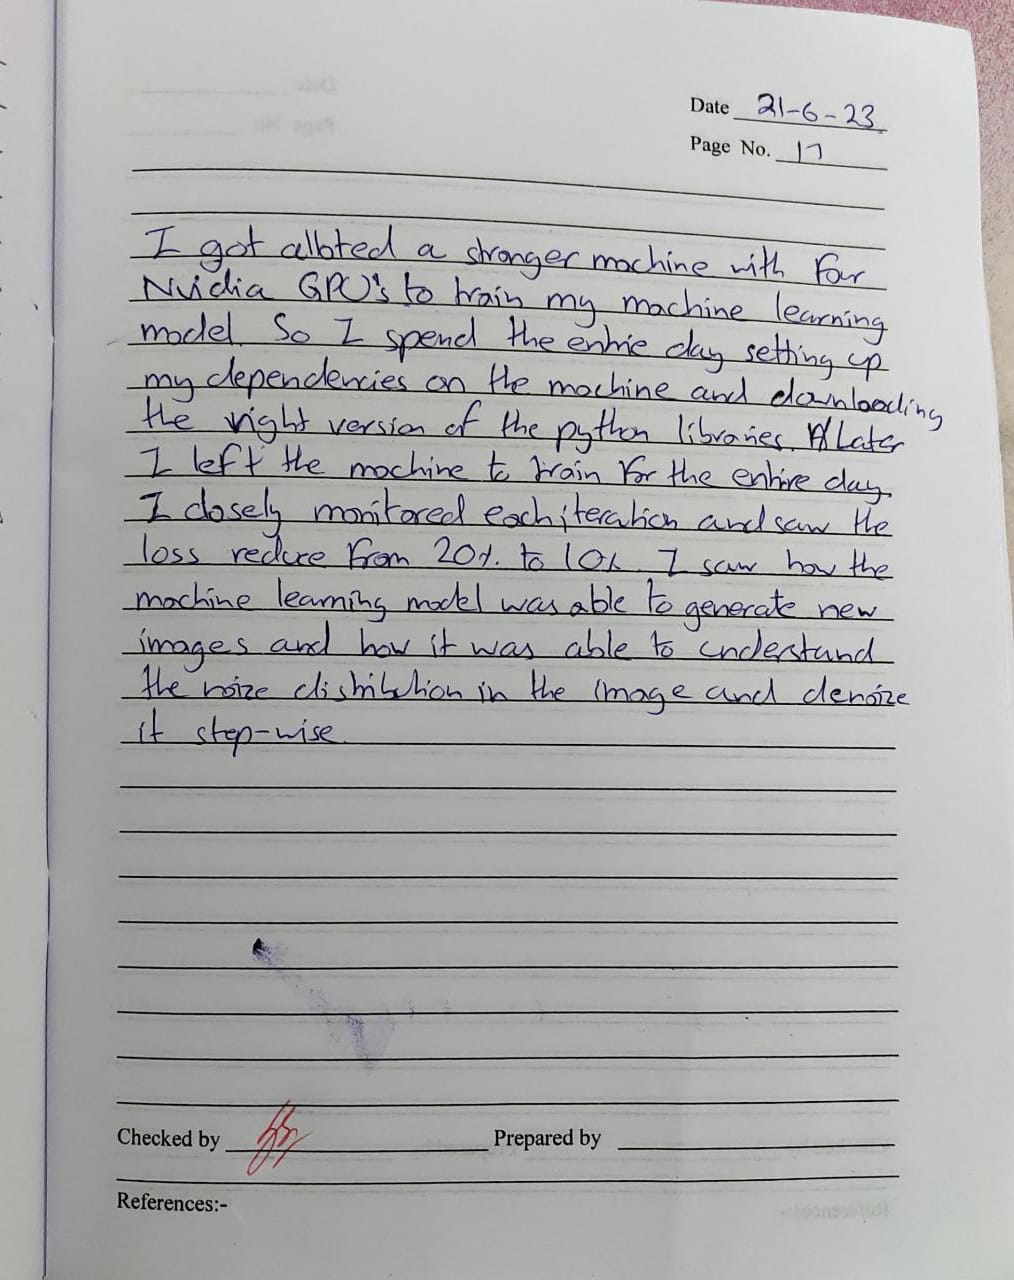 Date 21-6-23
Page No. 17
I got alloted a stronger machine with four
Nvidia GPU's to train my machine learning
model. So I spend the entire day setting up
my dependencies on the machine and downloading
the right version of the python libraries. Later
I left the machine to train for the entire day.
I closely monitored each iteration and saw the
loss reduce from 20% to 10%. I saw how the
machine learning model was able to generate new
images and how it was able to understand
the noize distribution in the image and denoize
it step-wise.
Checked by
Prepared by
References:-